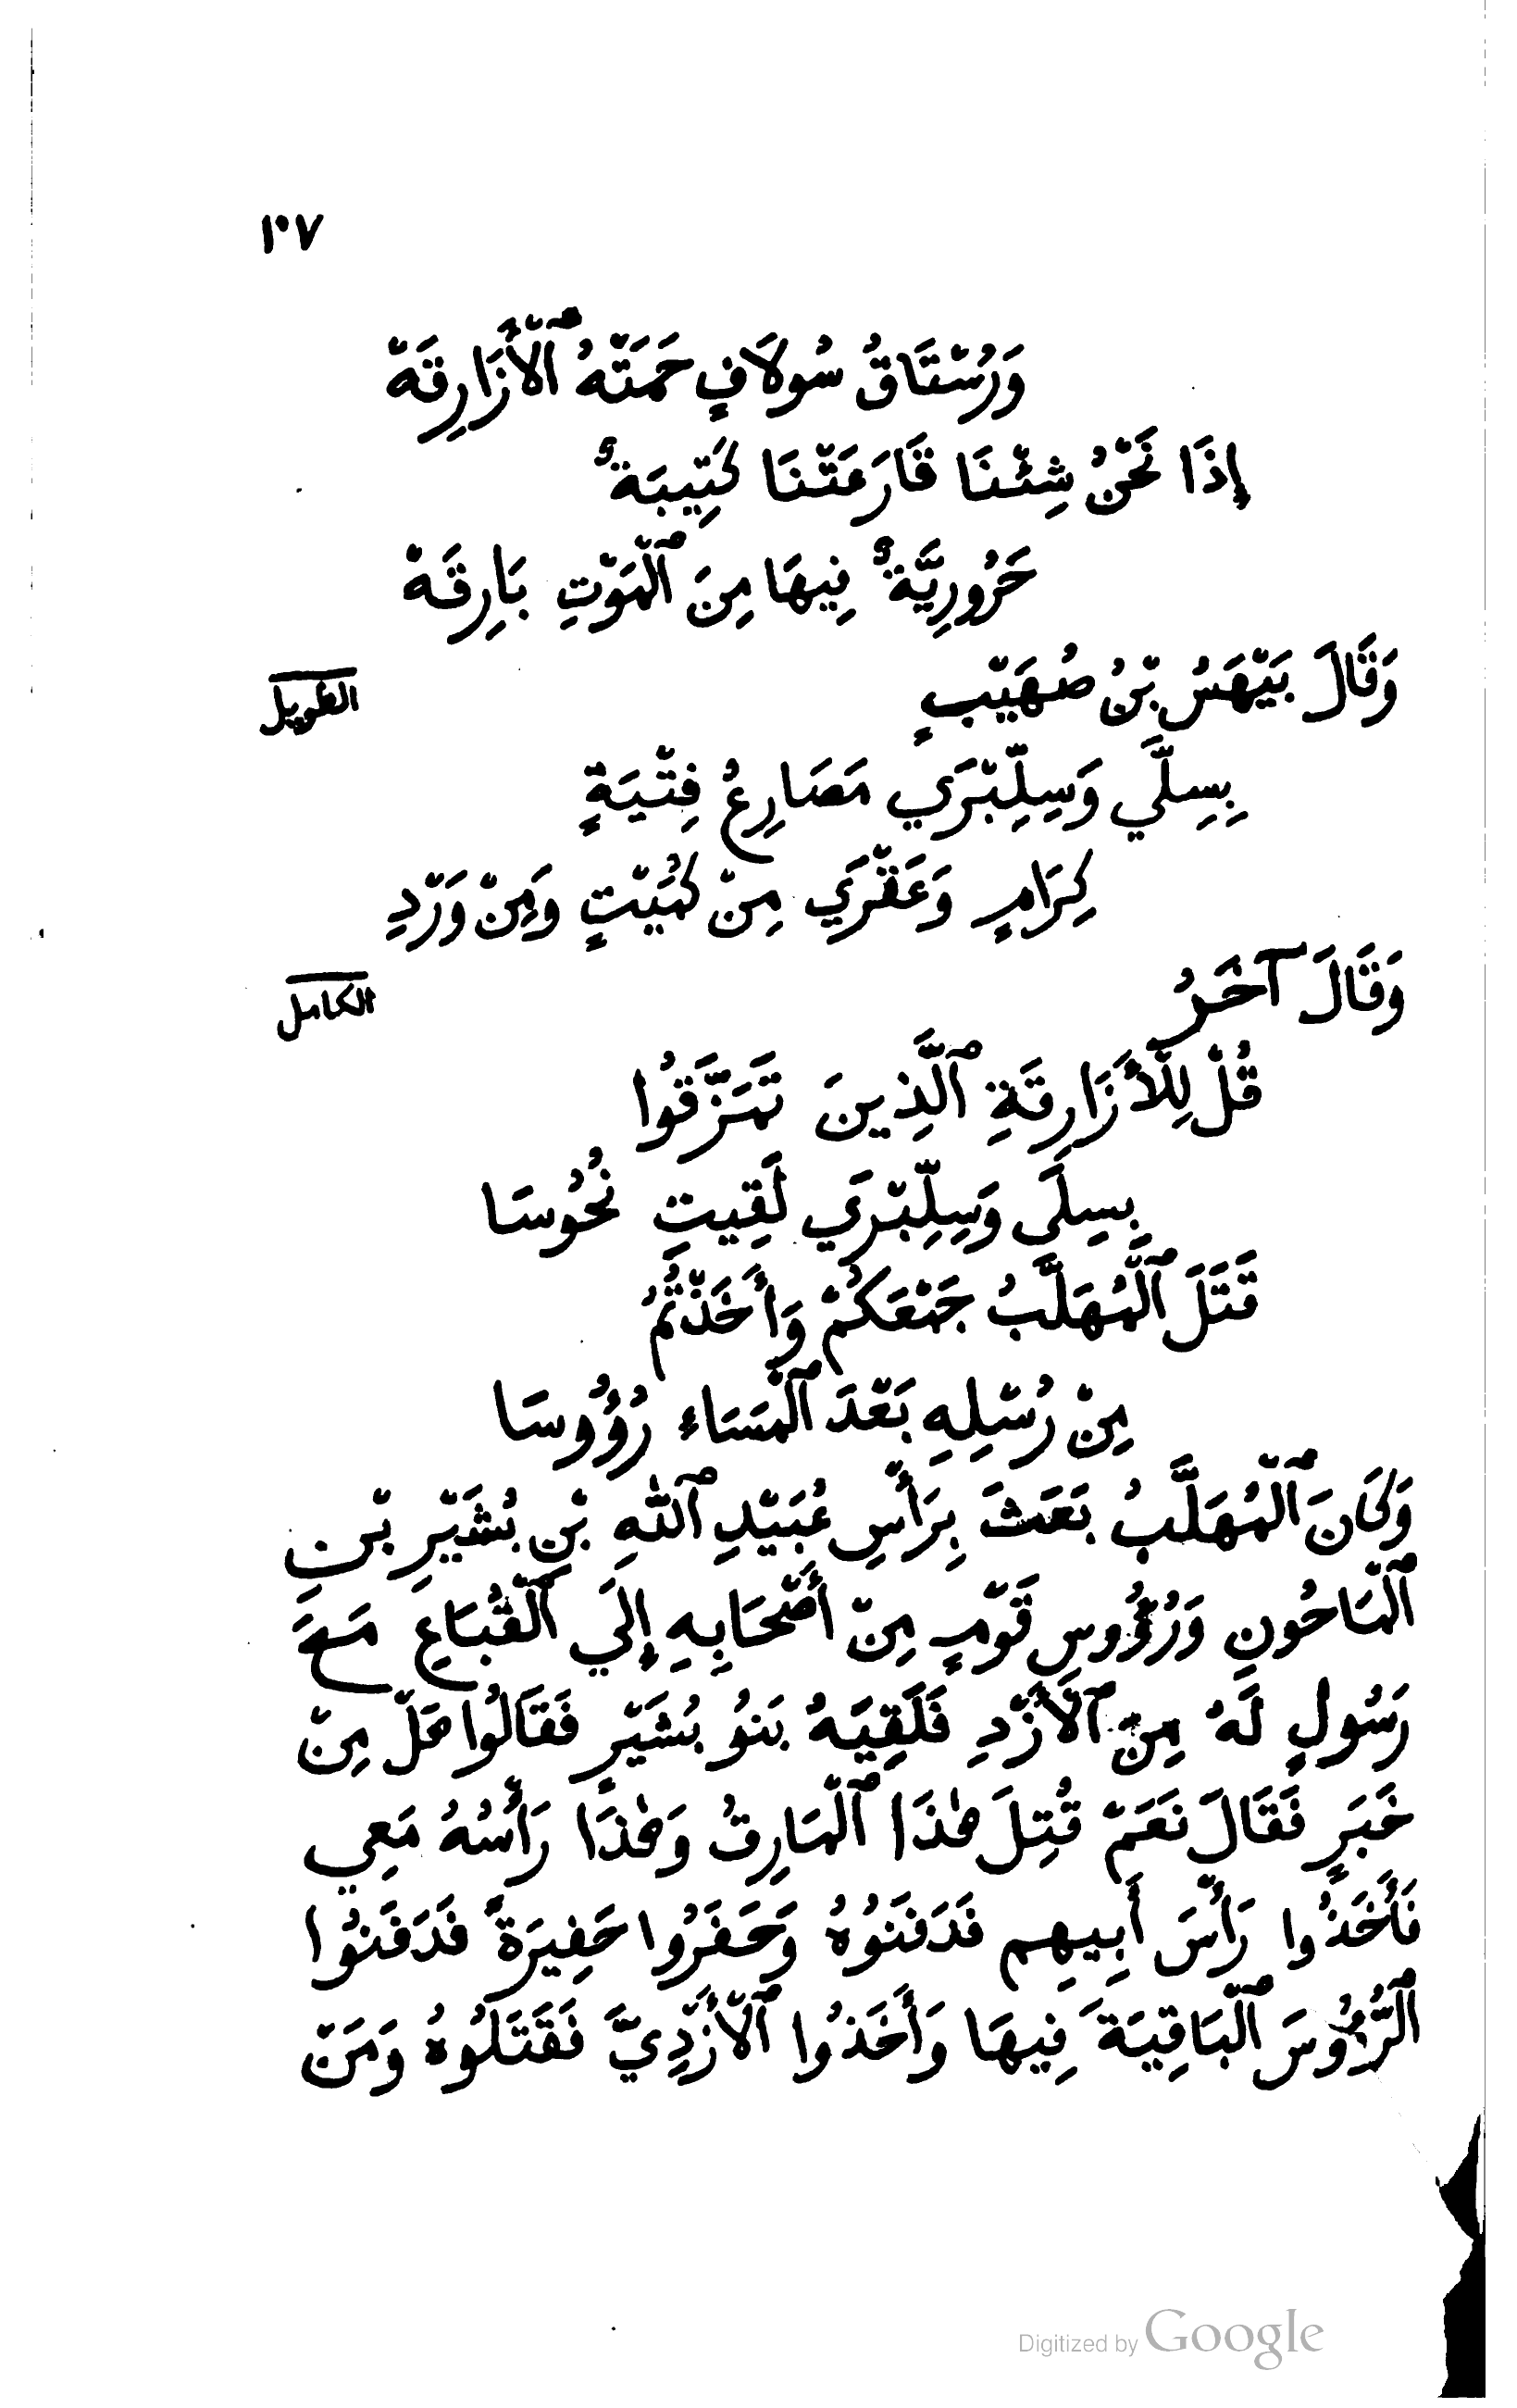 ١٠٧
وَرُسْتَاقُ سُولَافٍ حَمَتْهُ ٱلْأَزَارِقَهْ
إِذَا نَحْنُ شِئْنَا قَارَعَتْنَا كَتِيبَةٌ
حَرُورِيَّةٌ فِيهَا مِنَ ٱلْمَوْتِ بَارِقَهْ
وَقَالَ بَيْهَسُ بْنُ صُهَيْبٍ الطويل
بِسِلَّي وَسِلِّبْرَي مَصَارِعُ فِتْيَةٍ
كِرَامٍ وَعَقْرَي مِنْ كُمَيْتٍ وَمِنْ وَرْدِ
وَقَالَ آخَرُ الكامل
قُلْ لِلْأَزَارِقَةِ ٱلَّذِينَ تَمَزَّقُوا
بِسِلَي وَسِلِّبْرَي لَقِيتِ نُحُوسَا
قَتَلَ ٱلْمُهَلَّبُ جَمْعَكُمْ وَأَخَذْتُمُ
مِنْ رُسْلِهِ بَعْدَ ٱلْمَسَاء رُؤُوسَا
وَكَانَ ٱلْمُهَلَّبُ بَعَثَ بِرَأْسِ عُبَيْدِ ٱللّٰهِ بْنِ بُشَيْرِ بْنِ
ٱلْمَاحُونِ وَرُؤُوسِ قَوْمٍ مِنْ أَصْحَابِهِ إِلَي ٱلْقُبَاعِ مَعَ
رَسُولٍ لَهُ مِنَ ٱلْأَزْدِ فَلَقِيَهُ بَنُو بُشَيْرٍ فَقَالُوا هَلْ مِنْ
خَبَرٍ فَقَالَ نَعَمْ قُتِلَ هٰذَا ٱلْمَارِقُ وَهٰذَا رَأْسُهُ مَعِي
فَأَخَذُوا رَأْسَ أَبِيهِم فَدَفَنُوهُ وَحَفَرُوا حَفِيرَةً فَدَفَنُوا
ٱلرُّؤُوسَ ٱلْبَاقِيَةَ فِيهَا وَأَخَذُوا ٱلْأَزْدِيَّ فَقَتَلُوهُ وَمَنْ
Digitized by Google